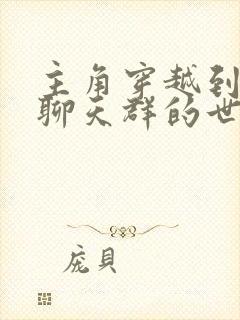 主角穿越到
聊天群的世
庞贝